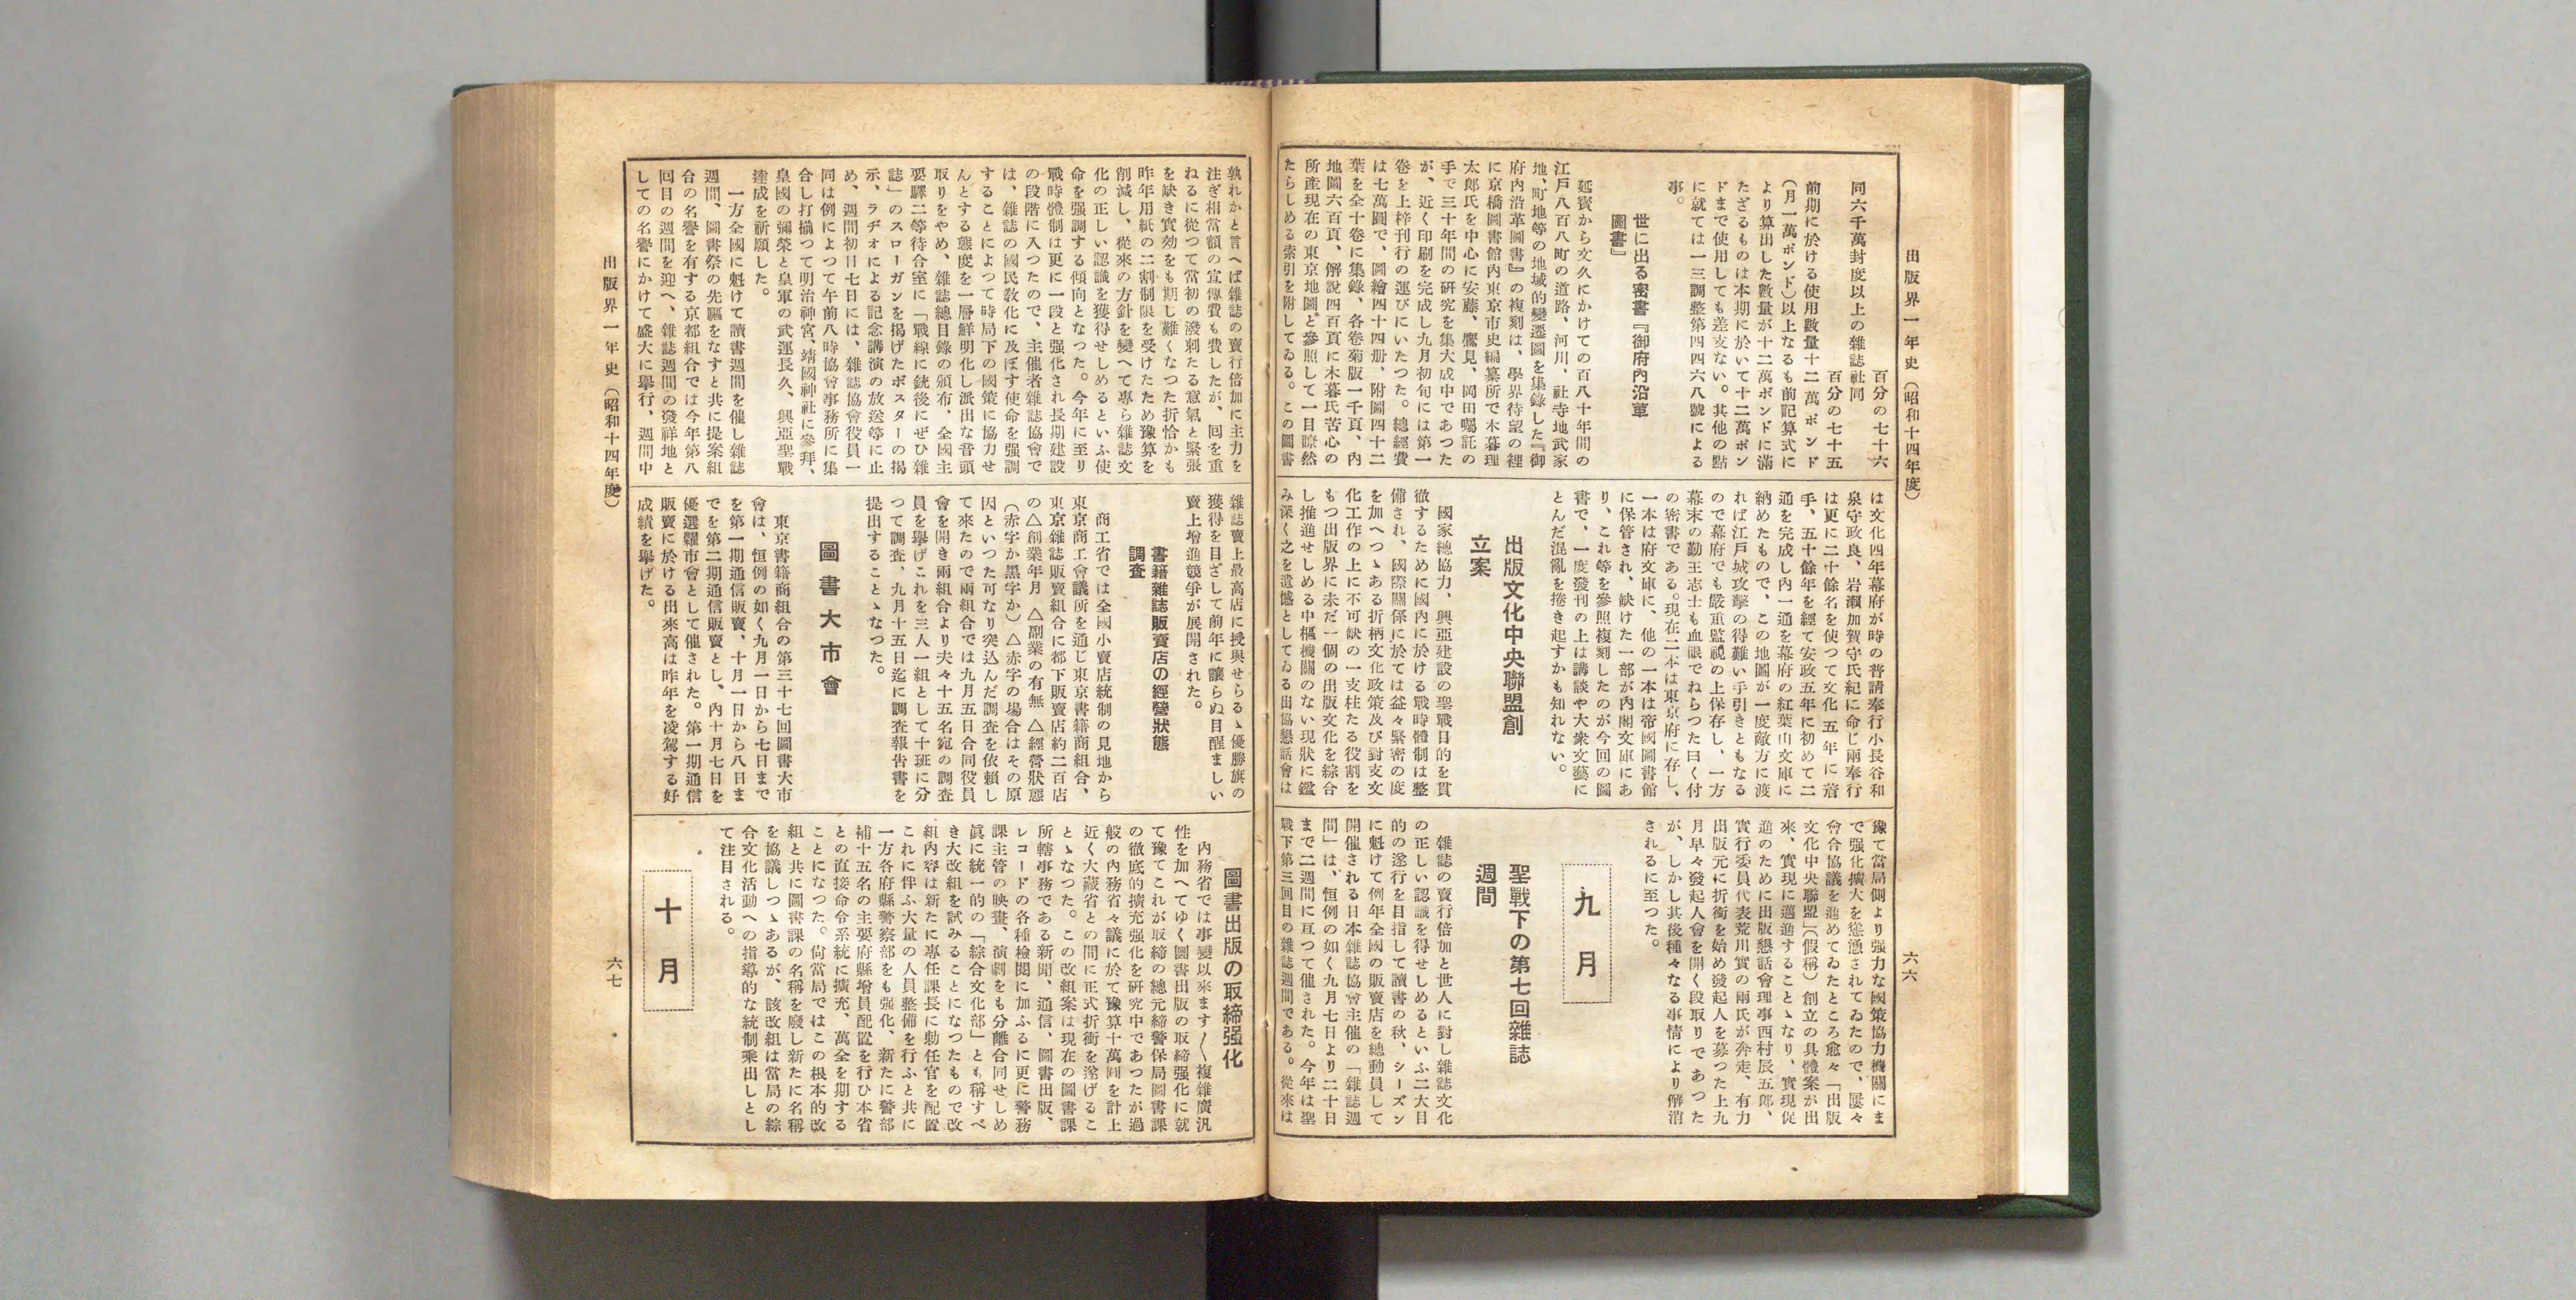 出版界一年史（昭和十四年度）
六六
百分の七十六
同六千萬封度以上の雜誌社同
百分の七十五
前期に於ける使用數量十二萬ポンド
（月一萬ポンド）以上なるも前記算式に
より算出した數量が十二萬ポンドに滿
たざるものは本期に於いて十二萬ポン
ドまで使用しても差支ない。其他の點
に就ては一三調整第四四六八號による
事。
世に出る密書『御府內沿革
圖書』
延寶から文久にかけての百八十年間の
江戶八百八町の道路、河川、社寺地武家
地、町地等の地域的變遷圖を集錄した『御
府內沿革圖書』の複刻は、學界待望の裡
に京橋圖書館內東京市史編纂所で木暮理
太郞氏を中心に安藤、鷹見、岡田囑託の
手で三十年間の硏究を集大成中であつた
が、近く印刷を完成し九月初旬には第一
卷を上梓刊行の運びにいたつた。總經費
は七萬圓で、圖繪四十四册、附圖四十二
葉を全十卷に集錄、各卷菊版一千頁、內
地圖六百頁、解說四百頁に木暮氏苦心の
所產現在の東京地圖と參照して一目瞭然
たらしめる索引を附してゐる。この圖書
は文化四年幕府が時の普請奉行小長谷和
泉守政良、岩瀨加賀守氏紀に命じ兩奉行
は更に二十餘名を使つて文化五年に着
手、五十餘年を經て安政五年に初めて二
通を完成し內一通を幕府の紅葉山文庫に
納めたもので、この地圖が一度敵方に渡
れば江戶城攻擊の得難い手引きともなる
ので幕府でも嚴重監視の上保存し、一方
幕末の勤王志士も血眼でねらつた曰く付
の密書である。現在二本は東京府に存し、
一本は府文庫に、他の一本は帝國圖書館
に保管され、缺けた一部が內閣文庫にあ
り、これ等を參照複刻したのが今回の圖
書で、一度發刊の上は講談や大衆文藝に
とんだ混亂を捲き起すかも知れない。
出版文化中央聯盟創
立案
國家總協力、興亞建設の聖戰目的を貫
徹するために國內に於ける戰時體制は整
備され、國際關係に於ては益々緊密の度
を加へつゝある折柄文化政策及び對支文
化工作の上に不可缺の一支柱たる役割を
もつ出版界に未だ一個の出版文化を綜合
し推進せしめる中樞機關のない現狀に鑑
み深く之を遺憾としてゐる出協懇話會は
豫て當局側より强力な國策協力機關にま
で强化擴大を慫慂されてゐたので、屢々
會合協議を進めてゐたところ愈々「出版
文化中央聯盟」（假稱）創立の具體案が出
來、實現に邁進することゝなり、實現促
進のために出版懇話會理事西村辰五郞、
實行委員代表荒川實の兩氏が奔走、有力
出版元に折衝を始め發起人を募つた上九
月早々發起人會を開く段取りであつた
が、しかし其後種々なる事情により解消
されるに至つた。
九月
聖戰下の第七回雜誌
週間
雜誌の賣行倍加と世人に對し雜誌文化
の正しい認識を得せしめるといふ二大目
的の遂行を目指して讀書の秋、シーズン
に魁けて例年全國の販賣店を總動員して
開催される日本雜誌協會主催の「雜誌週
間」は、恒例の如く九月七日より二十日
まで二週間に亙つて催された。今年は聖
戰下第三回目の雜誌週間である。從來は
孰れかと言へば雜誌の賣行倍加に主力を
注ぎ相當額の宣傳費も費したが、回を重
ねるに從つて當初の潑剌たる意氣と緊張
を缺き實効をも期し難くなつた折恰かも
昨年用紙の二割制限を受けたため豫算を
削減し、從來の方針を變へて專ら雜誌文
化の正しい認識を獲得せしめるといふ使
命を强調する傾向となつた。今年に至り
戰時體制は更に一段と强化され長期建設
の段階に入つたので、主催者雜誌協會で
は、雜誌の國民敎化に及ぼす使命を强調
することによつて時局下の國策に協力せ
んとする態度を一層鮮明化し派出な音頭
取りをやめ、雜誌總目錄の頒布、全國主
要驛二等待合室に「戰線に銃後にぜひ雜
誌」のスローガンを揭げたポスターの揭
示、ラヂオによる記念講演の放送等に止
め、週間初日七日には、雜誌協會役員一
同は例によつて午前八時協會事務所に集
合し打揃つて明治神宮、靖國神社に參拜、
皇國の彌榮と皇軍の武運長久、興亞聖戰
達成を祈願した。
一方全國に魁けて讀書週間を催し雜誌
週間、圖書祭の先驅をなすと共に提案組
合の名譽を有する京都組合では今年第八
回目の週間を迎へ、雜誌週間の發祥地と
しての名譽にかけて盛大に擧行、週間中
雜誌賣上最高店に授與せらるゝ優勝旗の
獲得を目ざして前年に讓らぬ目醒ましい
賣上增進競爭が展開された。
書籍雜誌販賣店の經營狀態
調査
商工省では全國小賣店統制の見地から
東京商工會議所を通じ東京書籍商組合、
東京雜誌販賣組合に都下販賣店約二百店
の△創業年月　△副業の有無　△經營狀態
（赤字か黑字か）△赤字の場合はその原
因といつた可なり突込んだ調査を依賴し
て來たので兩組合では九月五日合同役員
會を開き兩組合より夫々十五名宛の調査
員を擧げこれを三人一組として十班に分
つて調査、九月十五日迄に調査報告書を
提出することゝなつた。
圖書大市會
東京書籍商組合の第三十七回圖書大市
會は、恒例の如く九月一日から七日まで
を第一期通信販賣、十月一日から八日ま
でを第二期通信販賣とし、內十月七日を
優選糶市會として催された。第一期通信
販賣に於ける出來高は昨年を凌駕する好
成績を擧げた。
圖書出版の取締强化
內務省では事變以來ます〱複雜廣汎
性を加へてゆく圖書出版の取締强化に就
て豫てこれが取締の總元締警保局圖書課
の徹底的擴充强化を硏究中であつたが過
般の內務省々議に於て豫算十萬圓を計上
近く大藏省との間に正式折衝を遂げるこ
とゝなつた。この改組案は現在の圖書課
所轄事務である新聞、通信、圖書出版、
レコードの各種檢閱に加ふるに更に警務
課主管の映畫、演劇をも分離合同せしめ
眞に統一的の「綜合文化部」とも稱すべ
き大改組を試みることになつたもので改
組內容は新たに專任課長に勅任官を配置
これに伴ふ大量の人員整備を行ふと共に
一方各府縣警察部をも强化、新たに警部
補十五名の主要府縣增員配置を行ひ本省
との直接命令系統に擴充、萬全を期する
ことになつた。尙當局ではこの根本的改
組と共に圖書課の名稱を廢し新たに名稱
を協議しつゝあるが、該改組は當局の綜
合文化活動への指導的な統制乘出しとし
て注目される。
十月
出版界一年史（昭和十四年度）
六七